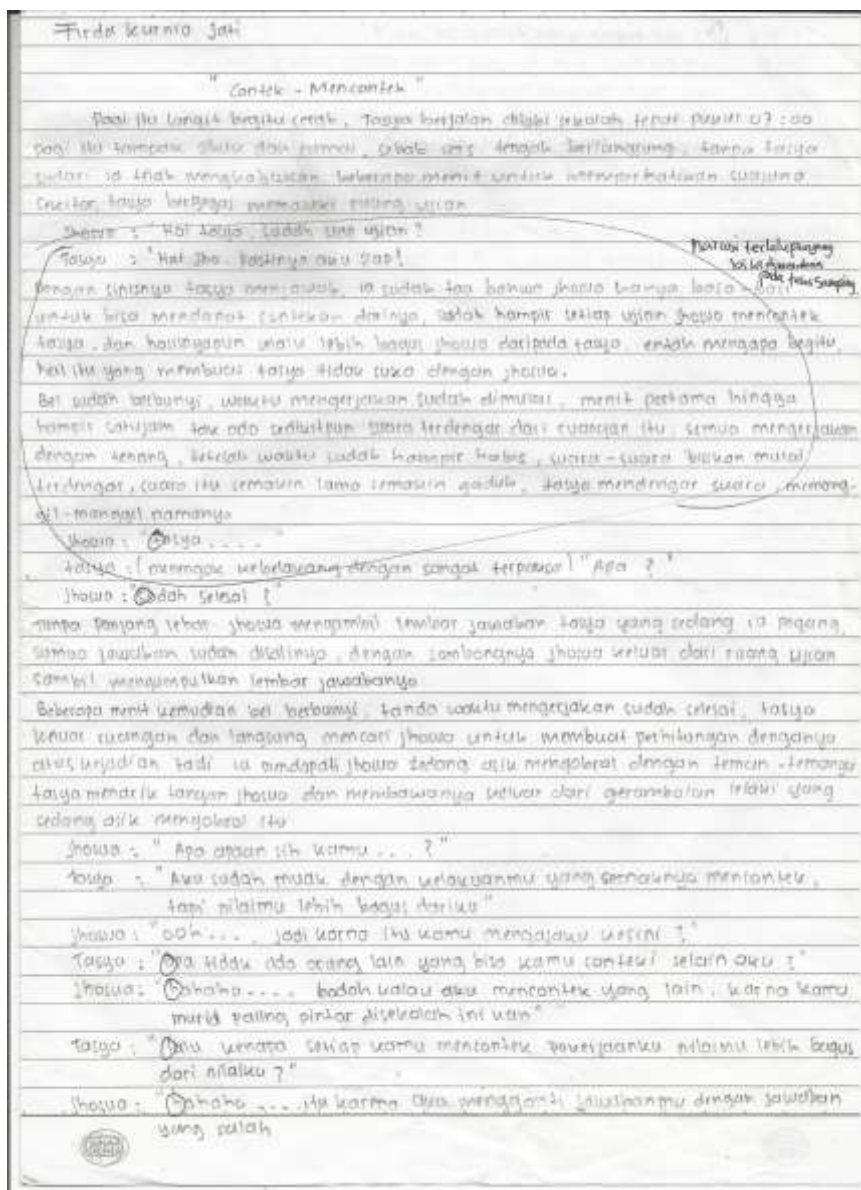 Firda kurnia Jati
" Contek - Mencontek "
Pagi itu langit begitu cerah, Tasya berjalan sekolah tepat pukul 07:00
pagi itu tampak dan ramai, tengah berlangsung, tanpa tasya
sadari ia telah menghabiskan beberapa menit untuk memperhatikan
tasya bergegas memasuki ruang ujian
Jhosua : "Hai tasya, sudah siap ujian ?
Tasya : "Hai Jho. Pastinya aku siap!
narasi terlalu panjang
pada teks samping
Dengan sinisnya tasya menjawab, ia sudah tau bahwa jhosua hanya basa-basi
untuk bisa mendapat contekan darinya, sudah hampir setiap ujian jhosua mencontek
tasya, dan hasilnyapun selalu lebih bagus jhosua daripada tasya, entah mengapa begitu,
hal itu yang membuat tasya tidak suka dengan jhosua.
Bel sudah berbunyi, waktu mengerjakan sudah dimulai, menit pertama hingga
hampir satujam tak ada sedikitpun suara terdengar dari ruangan itu, semua mengerjakan
dengan tenang, setelah waktu sudah hampir habis, suara-suara bisikan mulai
terdengar, suara itu semakin lama semakin gaduh, tasya mendengar suara memang-
gil-manggil namanya
Jhosua : "Tasya . . . . "
tasya : ( menengok kebelakang dengan sangat terpaksa) "Apa ? "
Jhosua : "Sudah selesai ?"
Tanpa panjang lebar jhosua mengambil lembar jawaban tasya yang sedang ia pegang,
semua jawaban sudah disalinya, dengan sombongnya jhosua keluar dari ruang ujian
sambil mengumpulkan lembar jawabanya
Beberapa menit kemudian bel berbunyi, tanda waktu mengerjakan sudah selesai, tasya
keluar ruangan dan langsung mencari jhosua untuk membuat perhitungan denganya
atas kejadian tadi ia mendapati jhosua sedang asik mengobrol dengan teman-temanya
tasya menarik tangan jhosua dan membawanya keluar dari gerombolan lelaki yang
sedang asik mengobrol itu
Jhosua : " Apa apaan sih kamu . . . ? "
tasya : " Aku sudah muak dengan kelakuanmu yang seenaknya mencontek,
tapi nilaimu lebih bagus dariku"
jhosua : "ooh . . . , jadi karna itu kamu mengajaku kesini ?"
Tasya : "Apa tidak ada orang lain yang bisa kamu conteki selain aku ?"
Jhosua : "Hahaha . . . . bodoh kalau aku mencontek yang lain, karna kamu
murid paling pintar disekolah ini kan"
Tasya : " kenapa setiap kamu mencontek pekerjaanku nilaimu lebih bagus
dari nilaiku ?"
Jhosua : "Hahaha . . . . itu karna aku mengganti jawabanmu dengan jawaban
yang salah